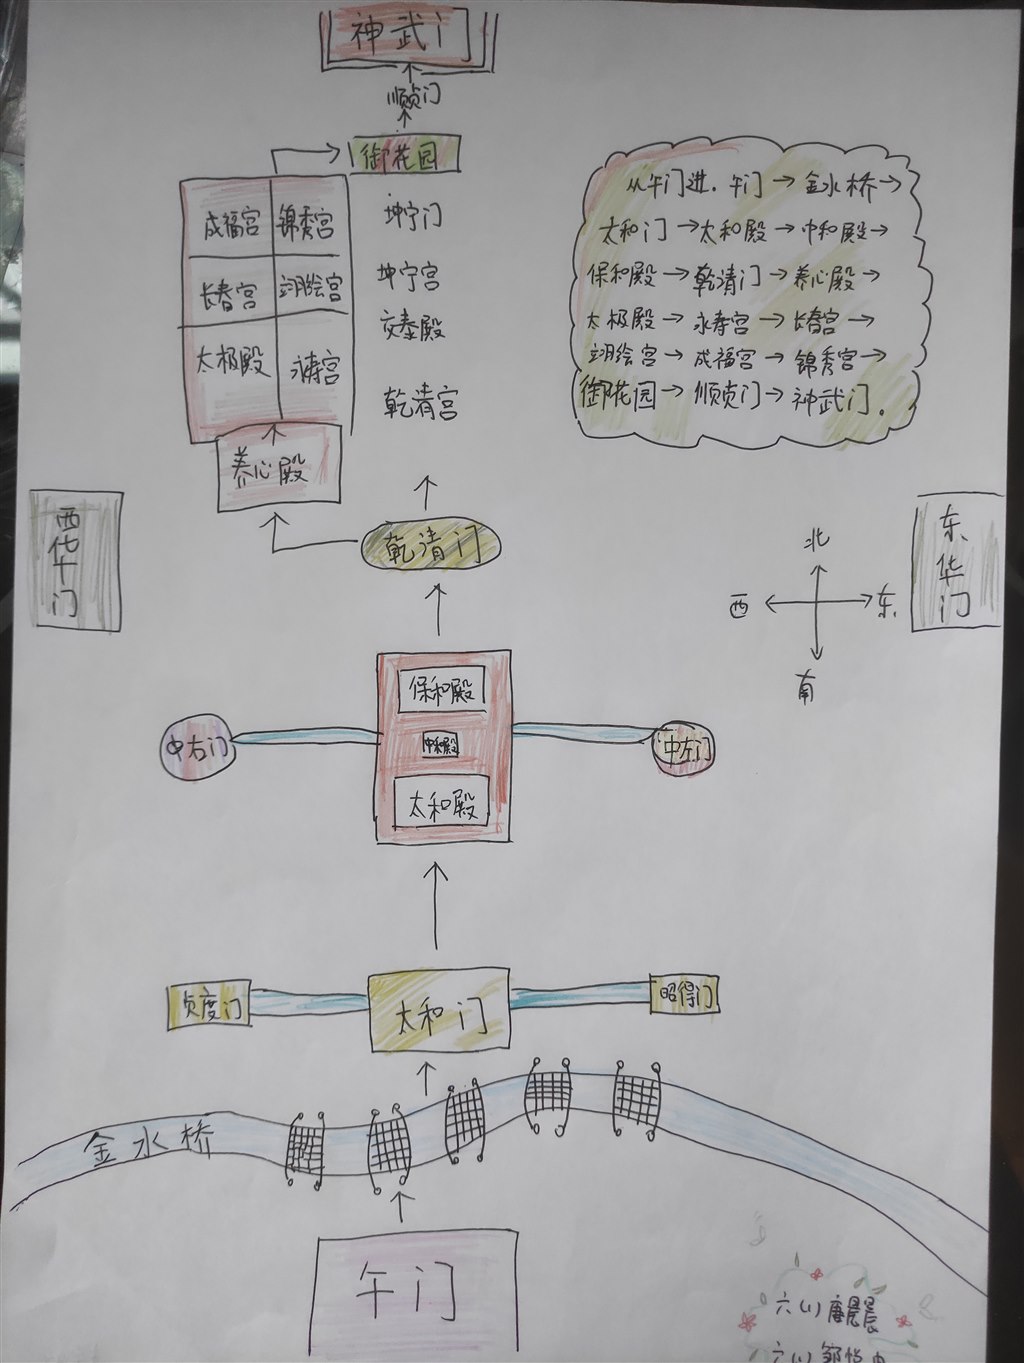 神武门
顺贞门
御花园
成福宫 锦秀宫
长春宫 翊绘宫
太极殿 永寿宫
养心殿
坤宁门
坤宁宫
交泰殿
乾清宫
从午门进.午门→金水桥→
太和门→太和殿→中和殿→
保和殿→乾清门→养心殿→
太极殿→永寿宫→长春宫→
翊绘宫→成福宫→锦秀宫→
御花园→顺贞门→神武门.
西华门
乾清门
东华门
北
西 东
南
保和殿
中右门 中和殿 中左门
太和殿
贞度门 太和门 昭得门
金水桥
午门
六(1)
六(1)